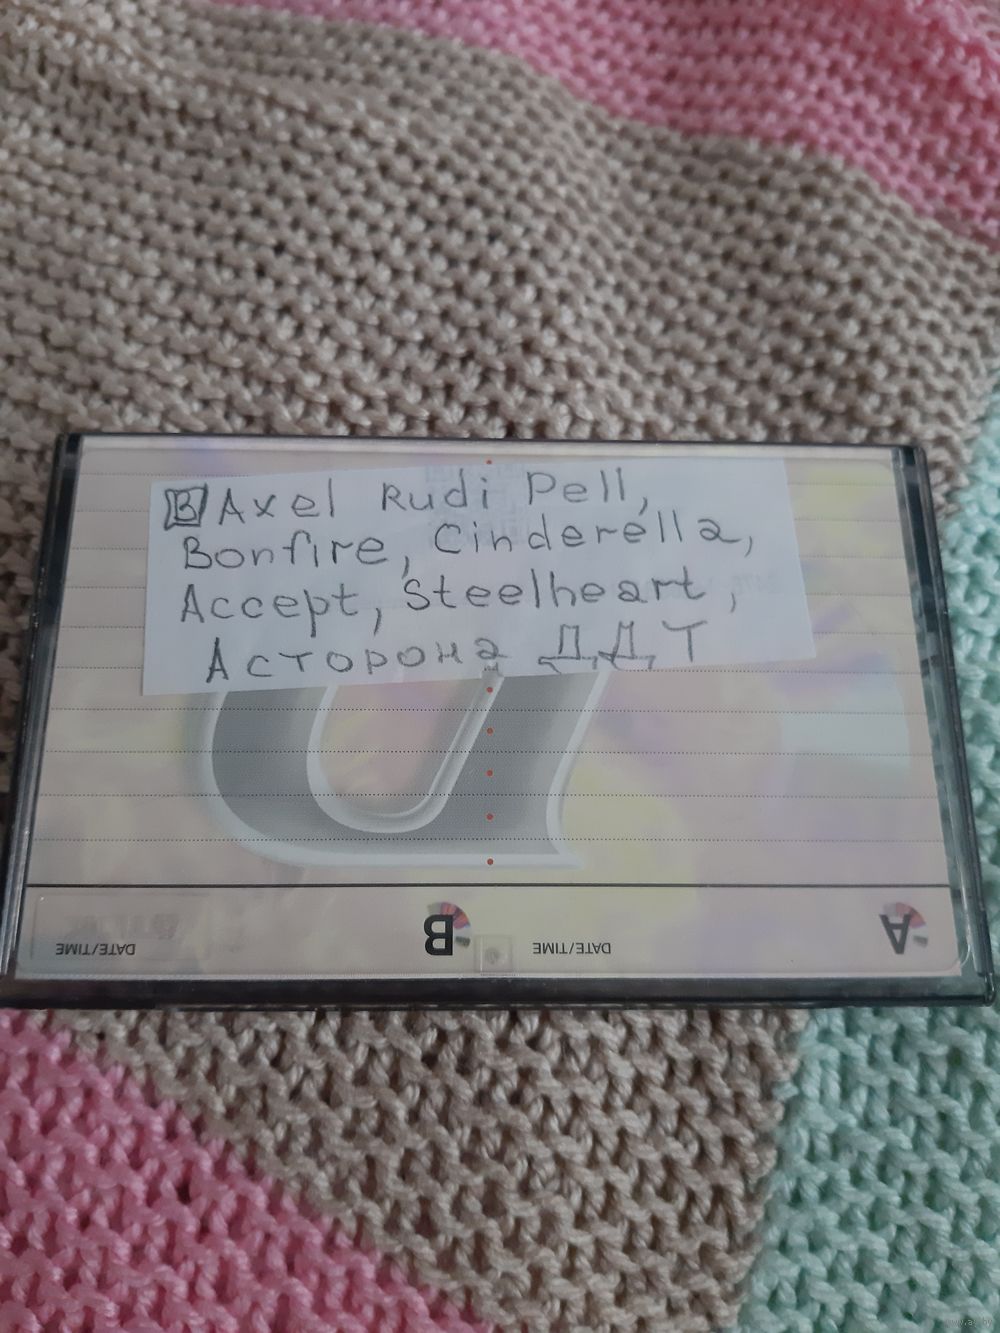 B Axel Rudi Pell,
Bonfire, Cinderella,
Accept, Steelheart,
Асторона ДДТ
DATE/TIME
B
DATE/TIME
A